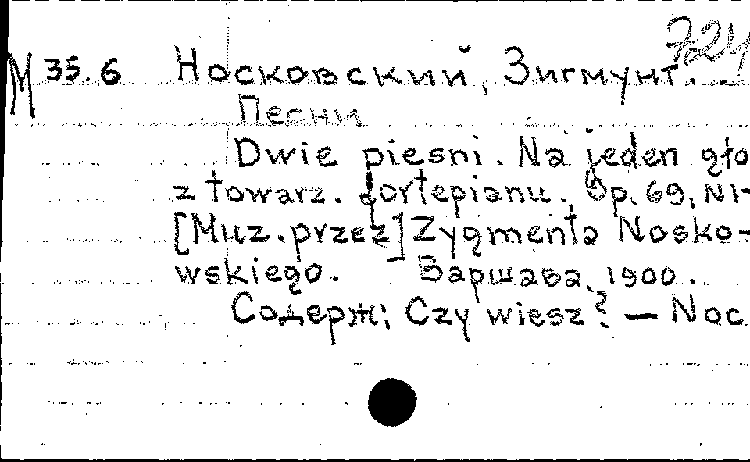 724
М 35.6 Носковский, Зигмунт.
Песни
Dwie piesni. Na jeden gło
z towarz. fortepianu., Op. 69, N1-
[Muz. przez] Zygmenta Nosko-
wskiego. Варшава, 1900.
Содерж: Czy wiesz? — Noc